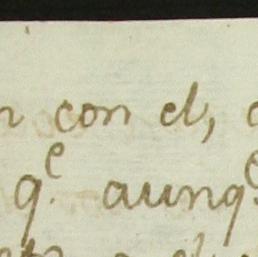 con el,
q.e aunq.e